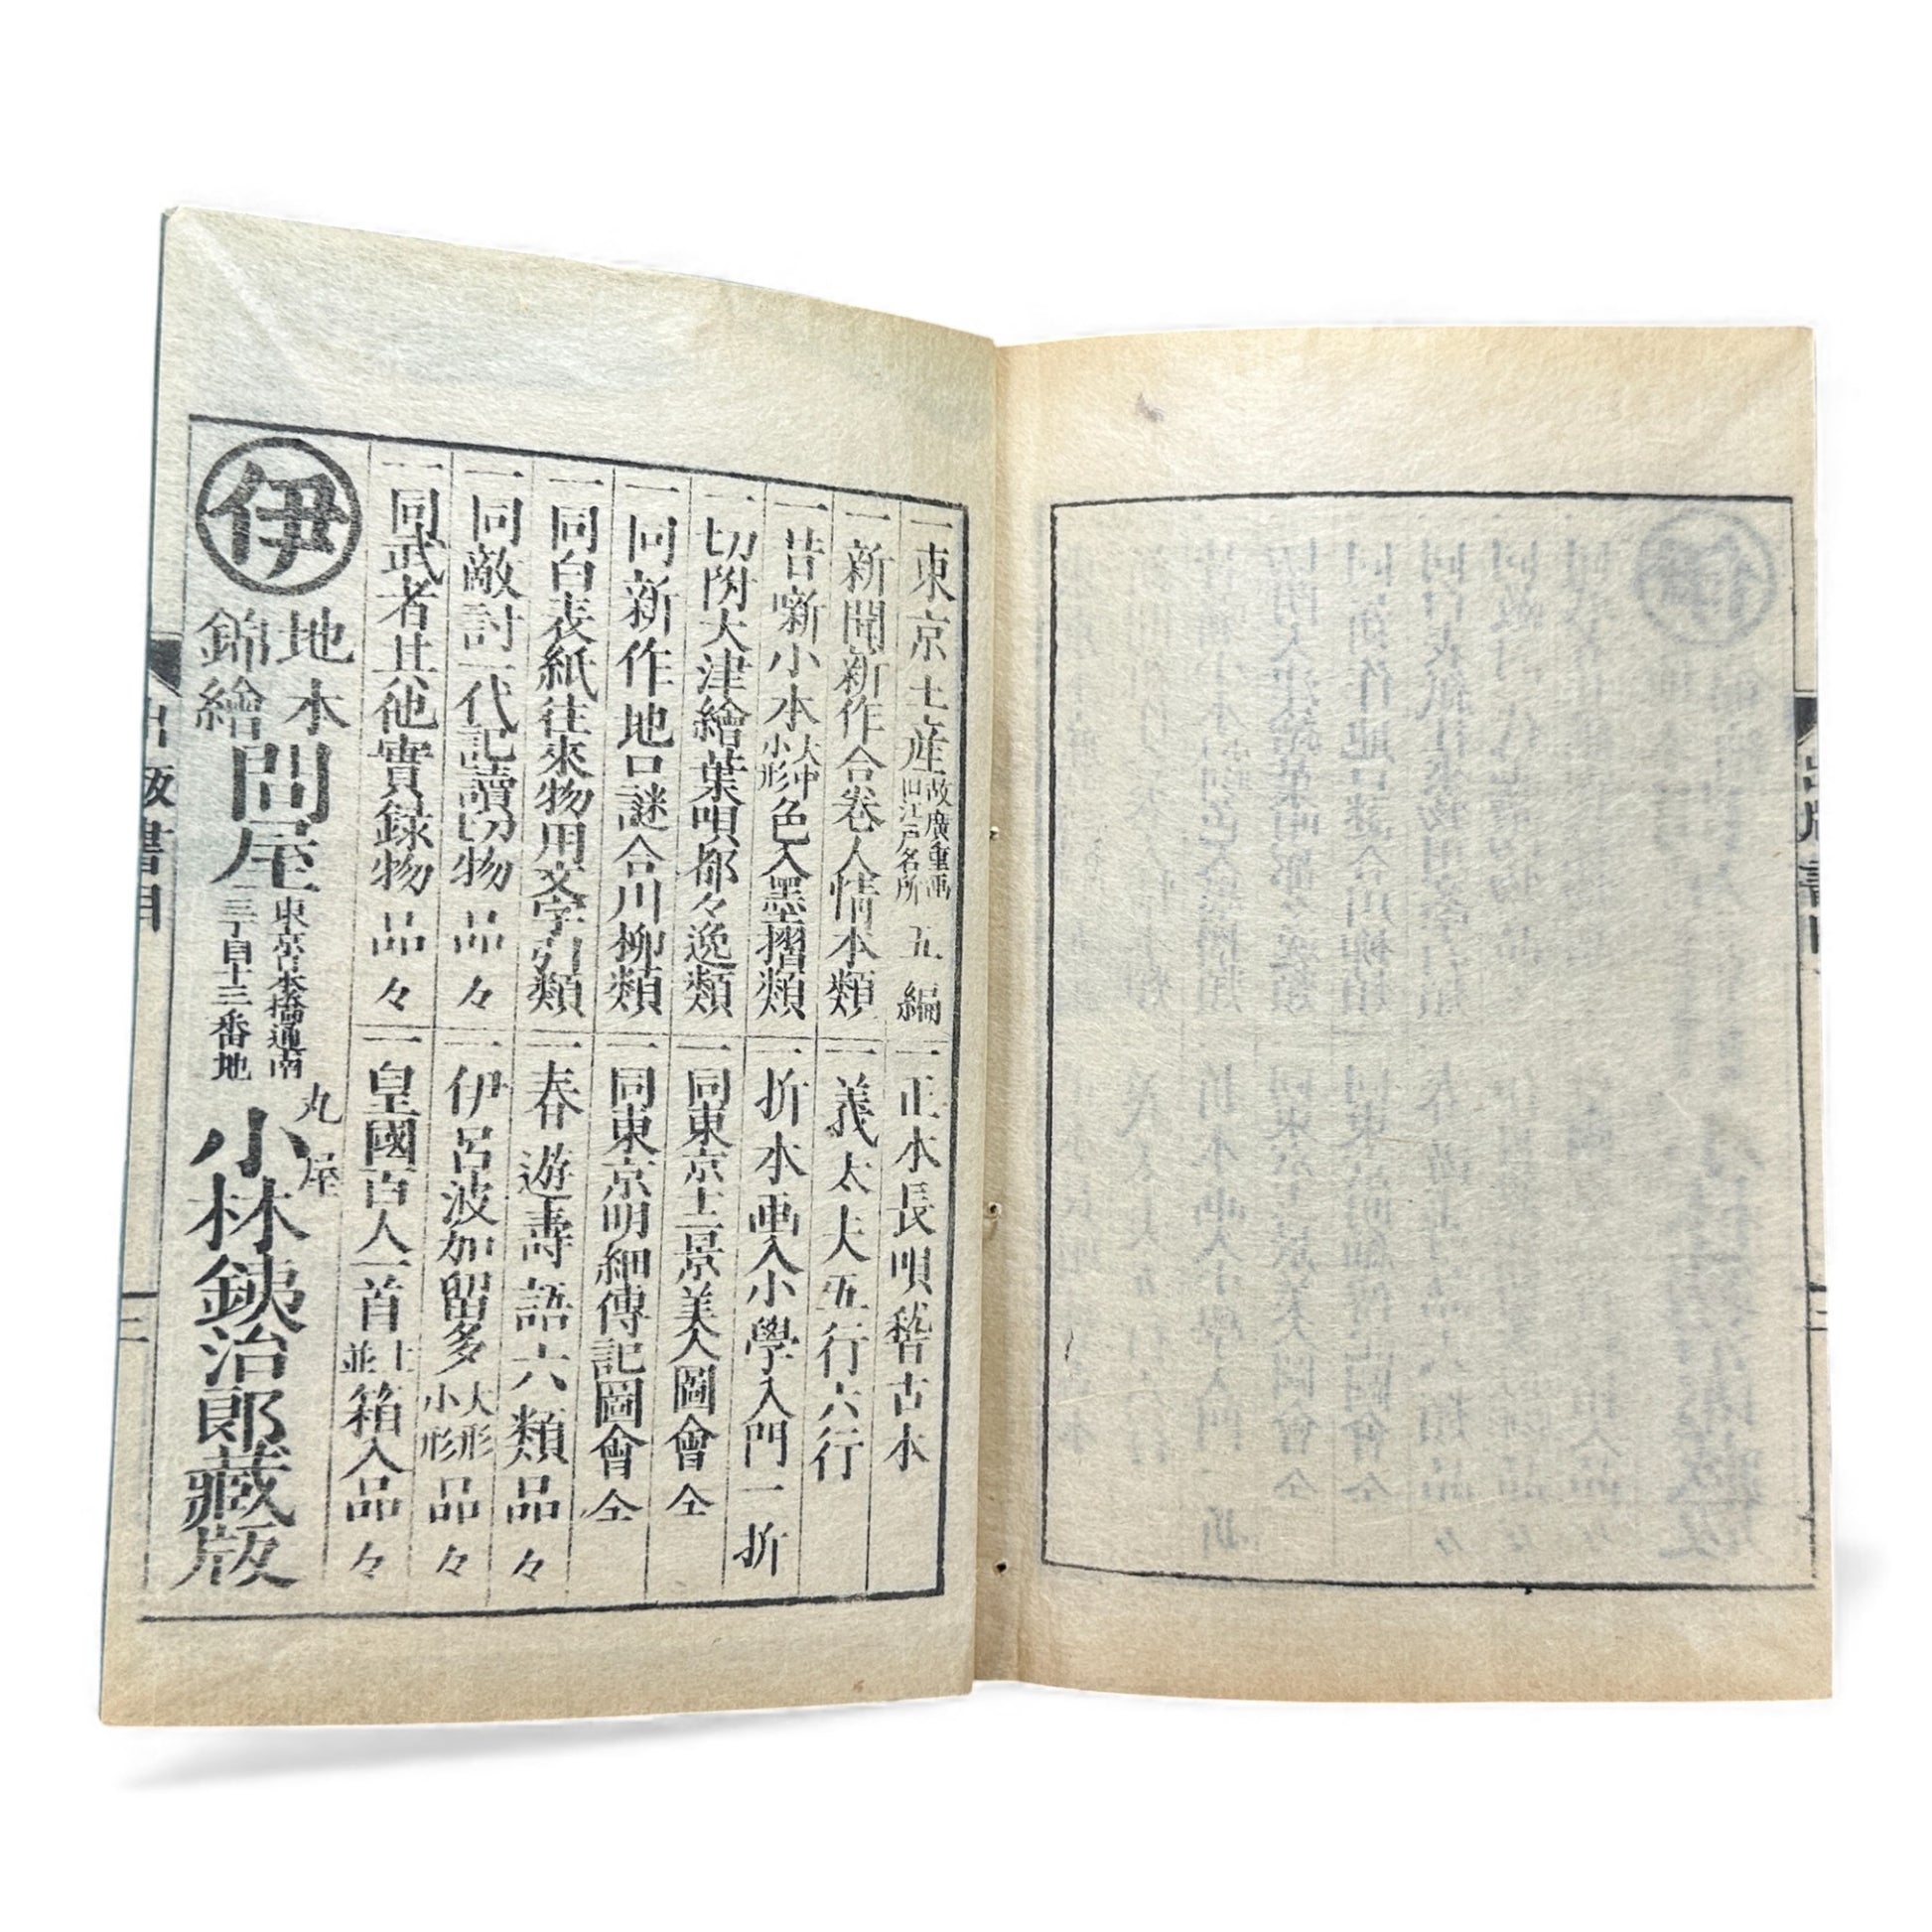 一東京土産 故廣重画 旧江戸名所 五編
一新聞新作合巻人情本類
一昔噺小本 大中小形 色入墨摺類
一切附大津繪葉唄都々逸類
一同新作地口謎合川柳類
一同白表紙往來物用文字引類
一同敵討一代記讀切物品々
一同武者其他實録物品々
一正本長唄稽古本
一義太夫五行六行
一折本画入小學入門一折
一同東京十二景美人圖會仝
一同東京明細傳記圖會仝
一春遊壽語六類品々
一伊呂波加留多 大形 小形 品々
一皇國百人一首 上 並 箱入品々
伊
地本
錦繪
問屋
東京日本橋通南
三丁目十三番地
丸屋
小林鉄治郎藏版
出版書目
三